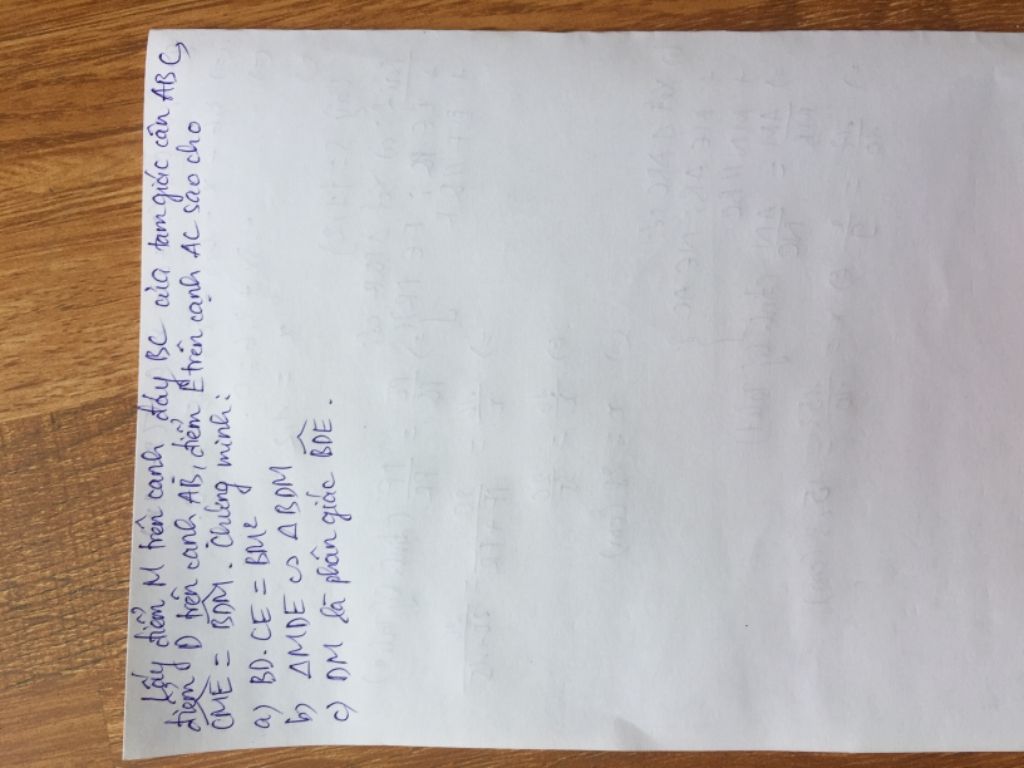 Lấy điểm M trên cạnh đáy BC của tam giác cân ABC,
điểm D trên cạnh AB, điểm E trên cạnh AC sao cho
CME = BDM. Chứng minh:
a) BD.CE = BM²
b) ΔMDE ∽ ΔBDM
c) DM là phân giác BDE.